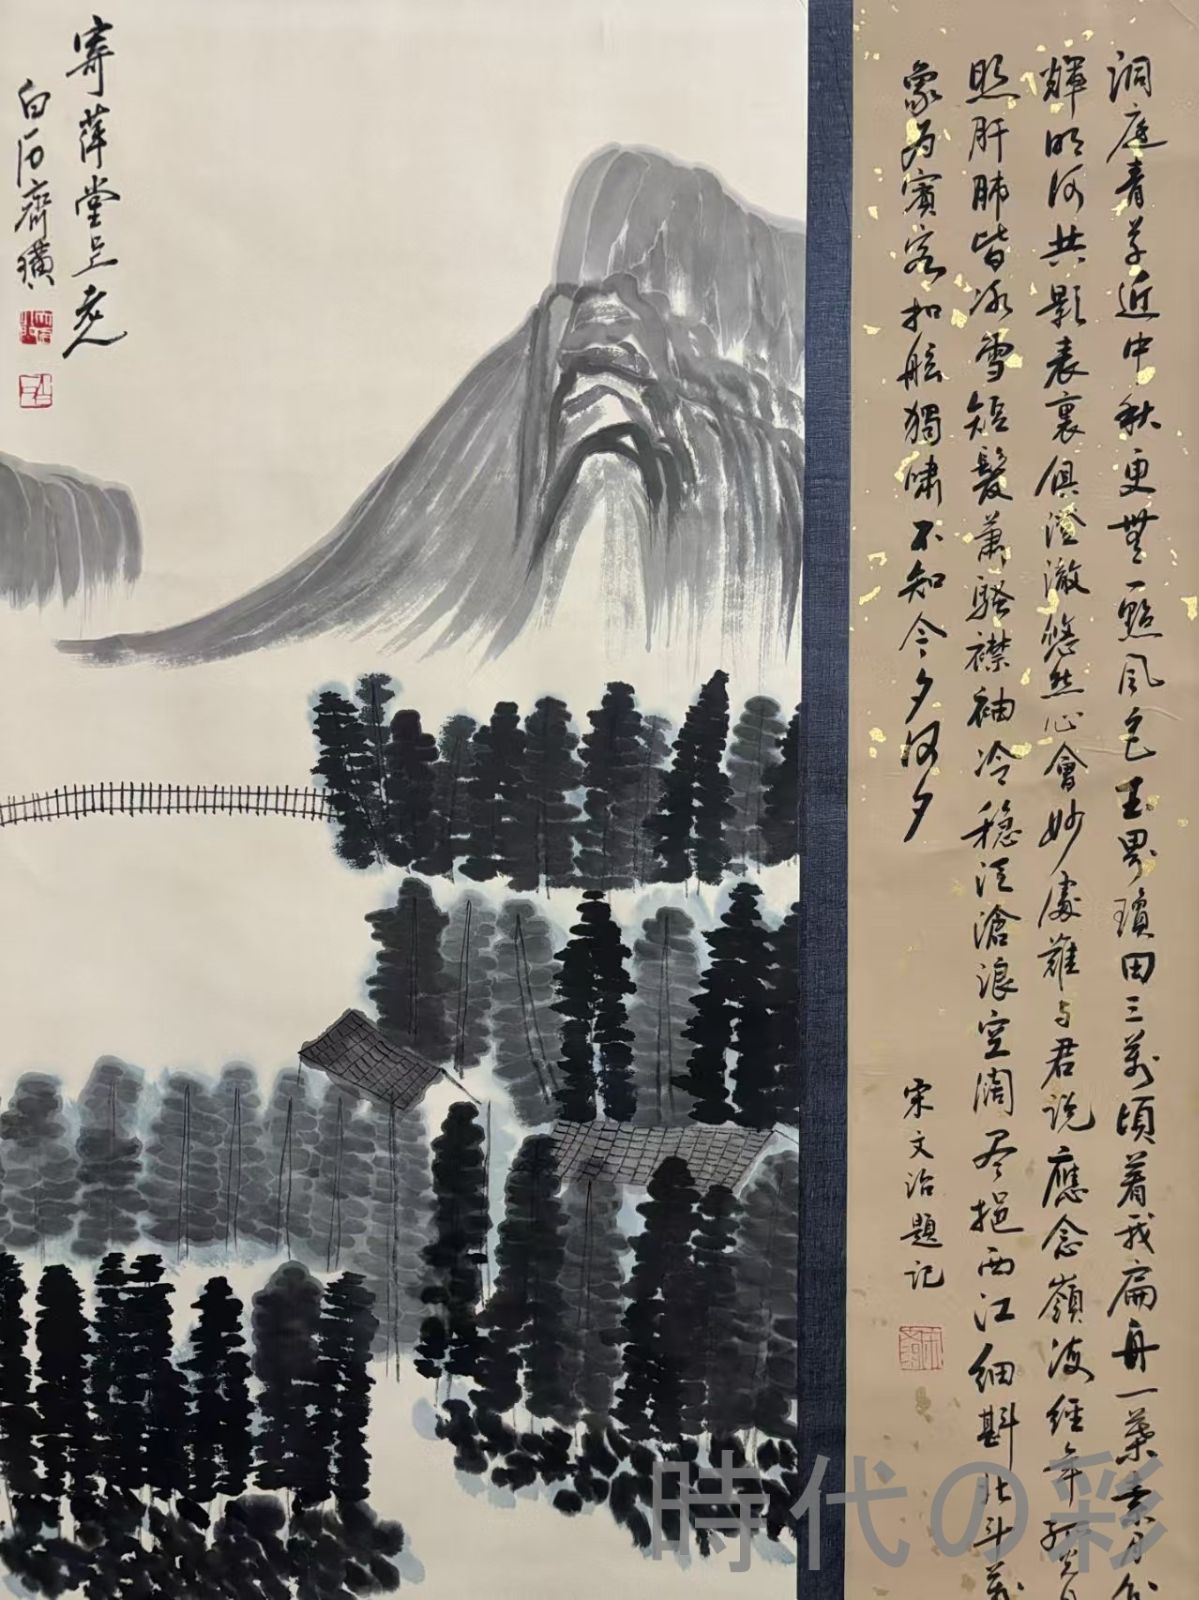 洞庭青草近中秋更無一點風色玉界瓊田三萬頃着我扁舟一葉素月分
輝明河共影表裏俱澄澈悠然心會妙處難与君説應念嶺海經年孤光自
照肝肺皆冰雪短髮蕭騷襟袖冷穩泛滄浪空闊尽挹西江細斟北斗萬
象为賓客扣舷獨嘯不知今夕何夕
宋文治題記
寄萍堂上老人
白石齊璜
時代の彩